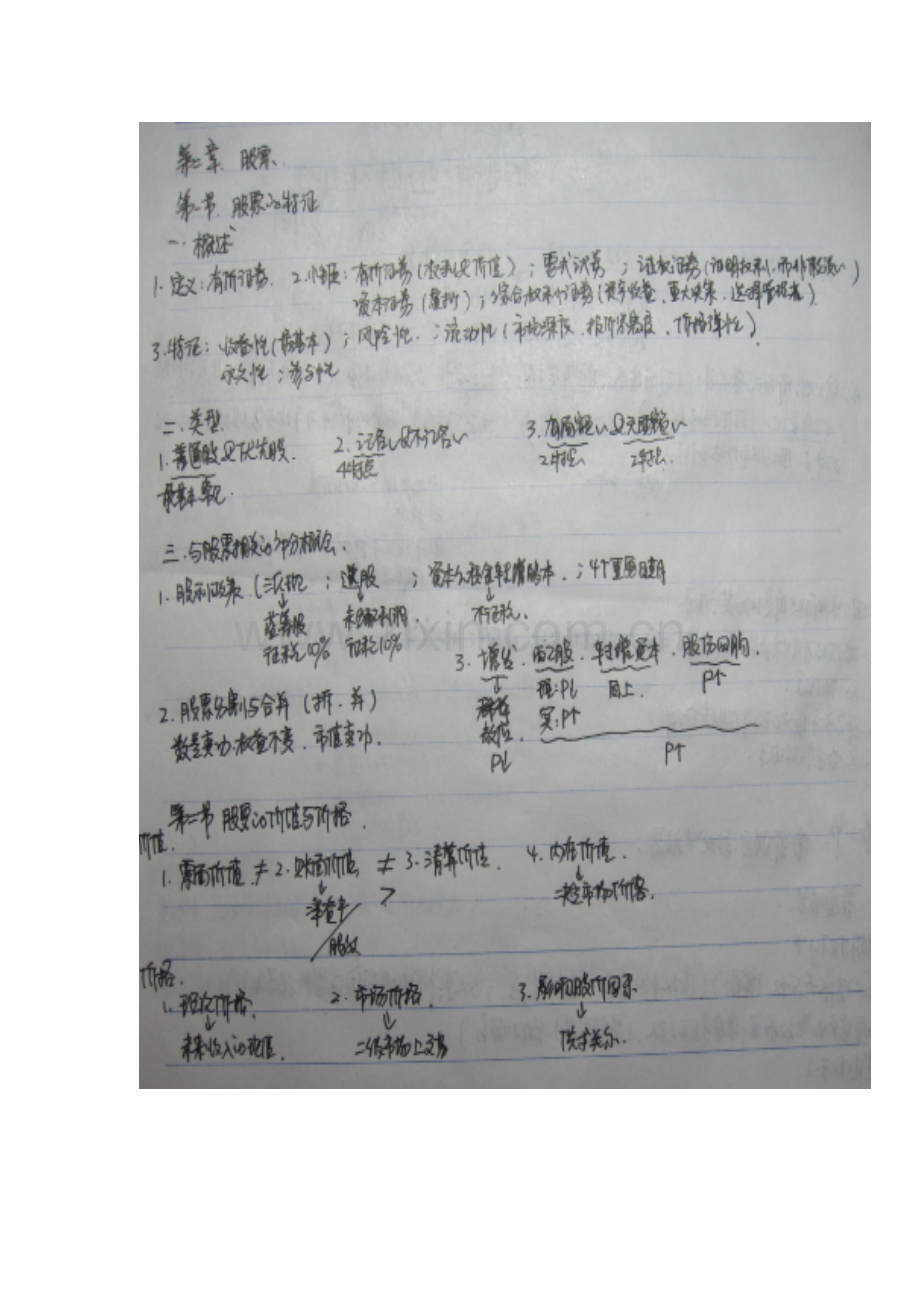 第二章 股票.
第一节. 股票的特征
一. 概述
1. 定义: 有价证券. 2. 性质: 有价证券(权利及价值); 要式证券; 证权证券(证明权利,而非形设~)
资本证券(虚拟); 综合权利证券(资产收益、重大决策、选择管理者)
3. 特征: 收益性(最基本); 风险性.; 流动性(市场深度、报价紧密度、价格弹性).
永久性; 参与性
二. 类型
1. 普通股及优先股. 2. 记名~及不记名~ 3. 有面额~及无面额~
最基本常见. 4个特点 2特点. 2特点.
三. 与股票相关的部分概念.
1. 股利政策. (派现; 送股; 资本公积金转增股本.; 4个重要日期
蓝筹股 未分配利润. 不征税.
征税10% 征税10%
3. 增发. 配股. 转增资本. 股份回购.
2. 股票分割与合并 (拆、并) 稀释 理:P↓ 同上. P↑
数量变动,权益不变、市值变动. 效应. 实:P↑
P↓ P↑
第二节 股票的价值与价格.
价值.
1. 票面价值 ≠ 2. 账面价值 ≠ 3. 清算价值. 4. 内在价值.
净资产 > 决定市场价格.
股数
价格.
1. 理论价格. 2. 市场价格. 3. 影响股价因素
未来收入的现值. 二级市场上交易 供求关系.
www.zixin.com.cn